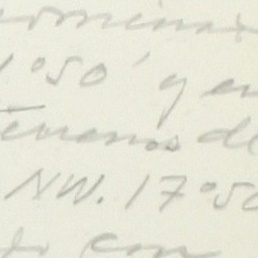 1°50' y en
terrenos de
NW. 17°50
con